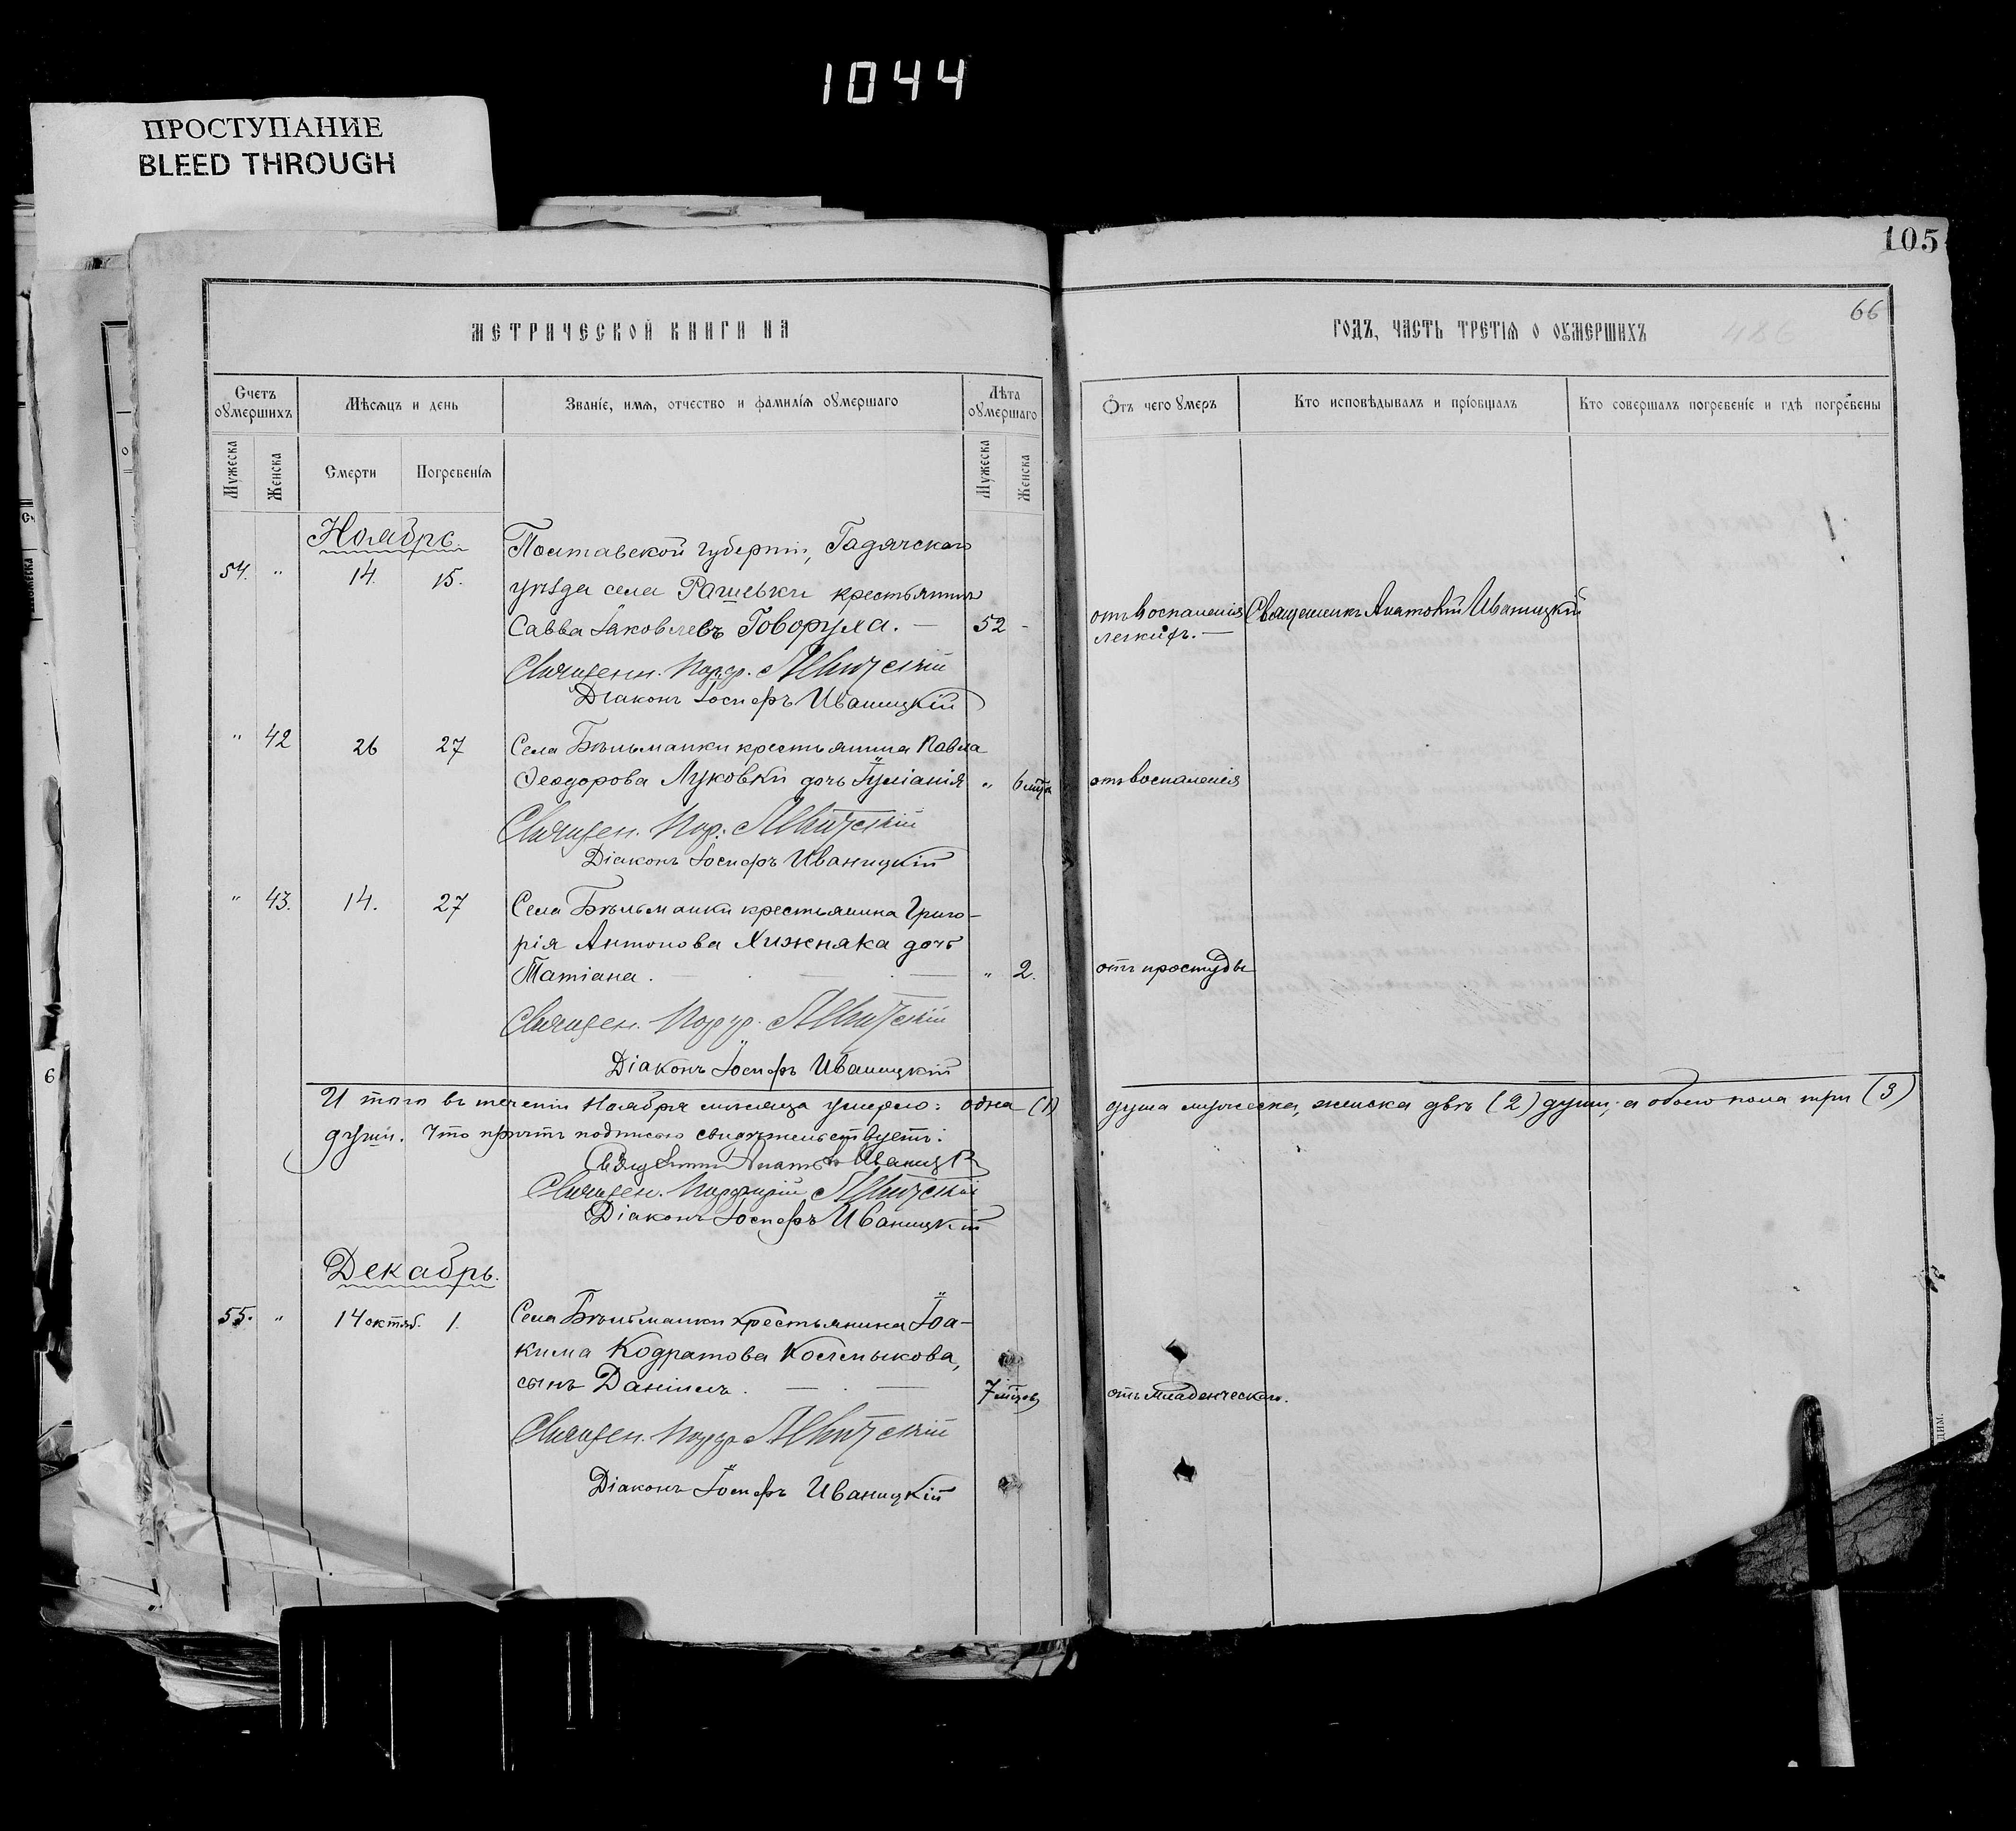 1044
ПРОСТУПАНИЕ
BLEED THROUGH
105
66
МЕТРИЧЕСКОЙ КНИГИ НА
ГОДЪ, ЧАСТЬ ТРЕТІѦ О ОУМЕРШИХЪ
Счетъ оумершихъ
Мѣсяцъ и день
Званіе, имя, отчество и фамилія оумершаго
Лѣта оумершаго
Отъ чего умеръ
Кто исповѣдывалъ и пріобщалъ
Кто совершалъ погребеніе и гдѣ погребены
Мужеска
Женска
Смерти
Погребенія
Мужеска
Женска
Ноябрь.
Полтавской губерніи, Гадячскаго
54. " 14. 15. уѣзда села Рашевки крестьянинъ
Савва Іаковлевъ Говоруха. — 52 - отъ воспаленія Священникъ Анатолій Иваницкій
легкихъ. —
Священн.
Діаконъ Іосифъ Иваницкій
" 42 26 27 Села Бѣльманки крестьянина Павла
Ѳеодорова Луковки дочь Іуліанія " 6 мцъ отъ воспаленія
Священ.
Діаконъ Іосифъ Иваницкій
" 43. 14. 27 Села Бѣльманки крестьянина Григо-
рія Антонова Хижняка дочь
Татіана. — " 2. отъ простуды
Священ.
Діаконъ Іосифъ Иваницкій
И того въ теченіи Ноября мѣсяца умерло: одна (1) душа мужеска, женска двѣ (2) души; а обоего пола три (3)
души. Что причтъ подписью свидѣтельствуетъ:
Священникъ Анатолій Иваницкій
Священ. Порфирій
Діаконъ Іосифъ Иваницкій
Декабрь.
55. " 14 октяб. 1. Села Бѣльманки крестьянина Іоа-
кима Кодратова
сынъ Даніилъ. — 7 мцовъ отъ младенческаго.
Священ.
Діаконъ Іосифъ Иваницкій